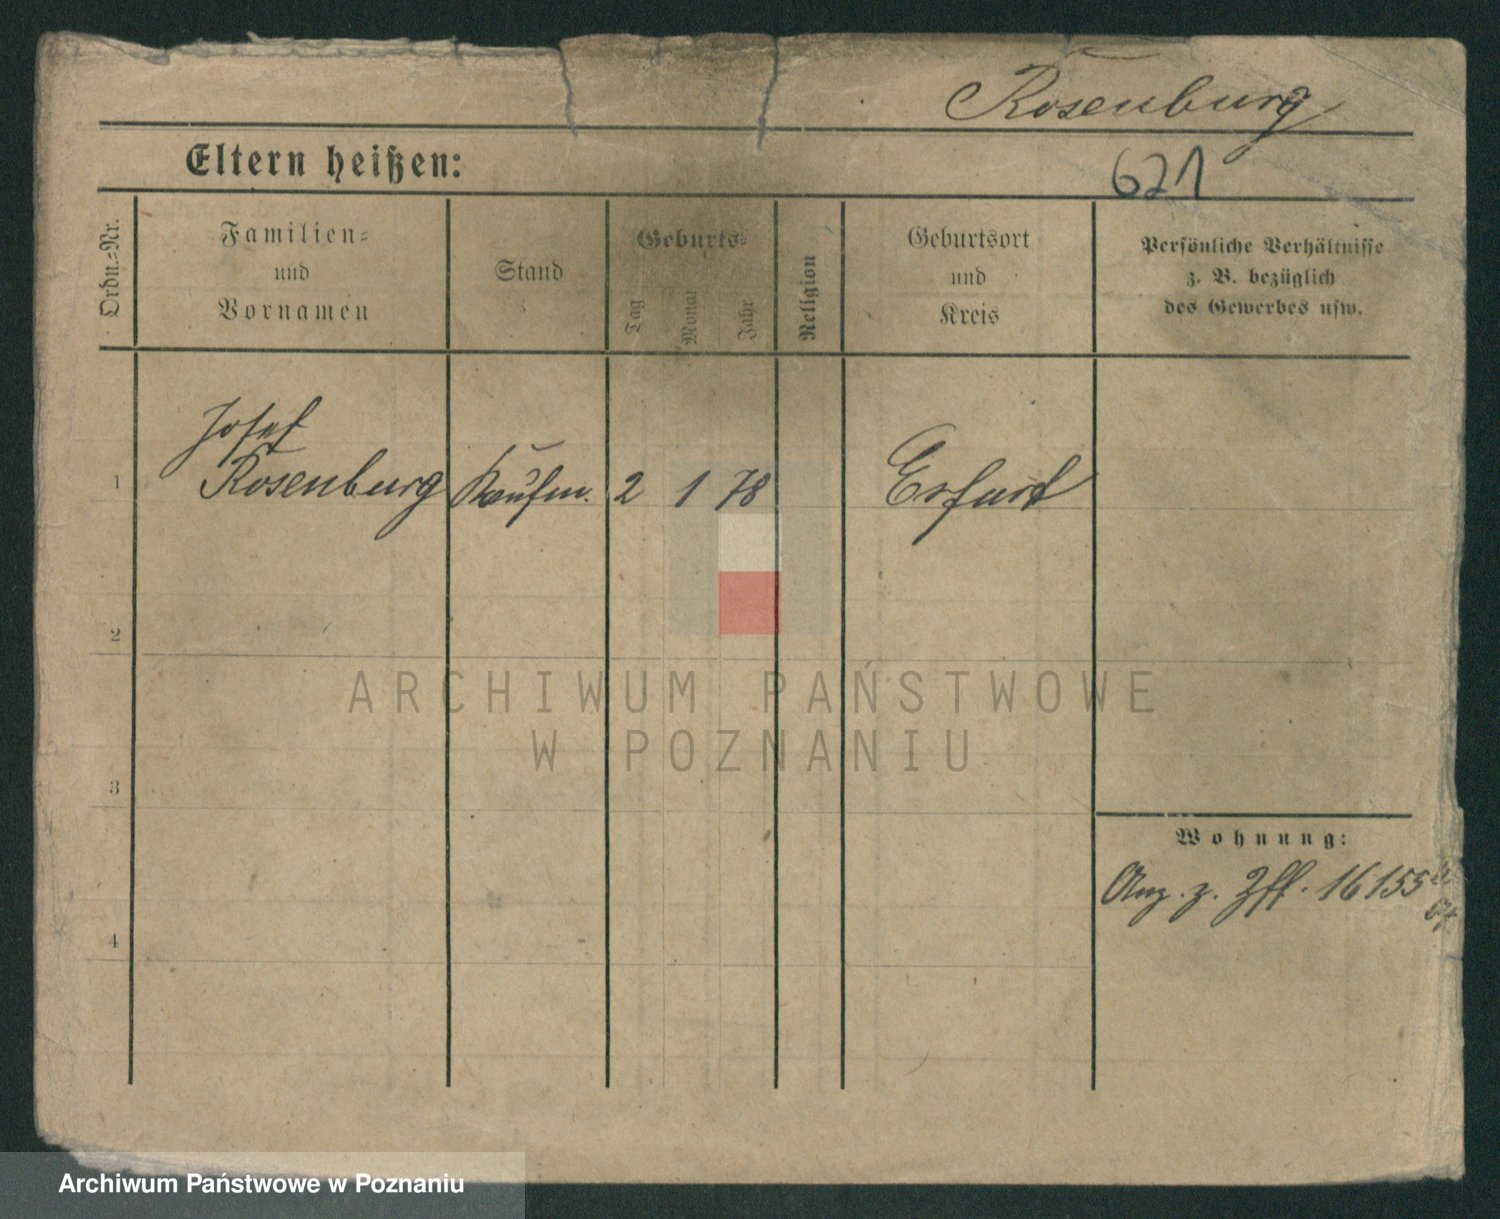 Rosenburg
Eltern heißen:
621
Ordn.=Nr.
Familien=
und
Vornamen
Stand
Geburts=
Tag
Monat
Jahr
Religion
Geburtsort
und
Kreis
Persönliche Verhältnisse
z. B. bezüglich
des Gewerbes usw.
1
Josef
Rosenburg
Kaufm.
2 1 78
Erfurt
2
3
4
Wohnung:
Anz. z. Zff. 16155
ARCHIWUM PAŃSTWOWE
W POZNANIU
Archiwum Państwowe w Poznaniu